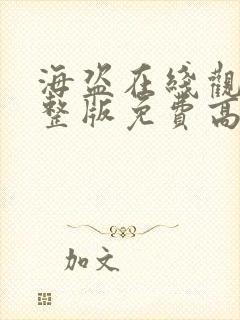 海盗在綫觀
整版免費高
加文